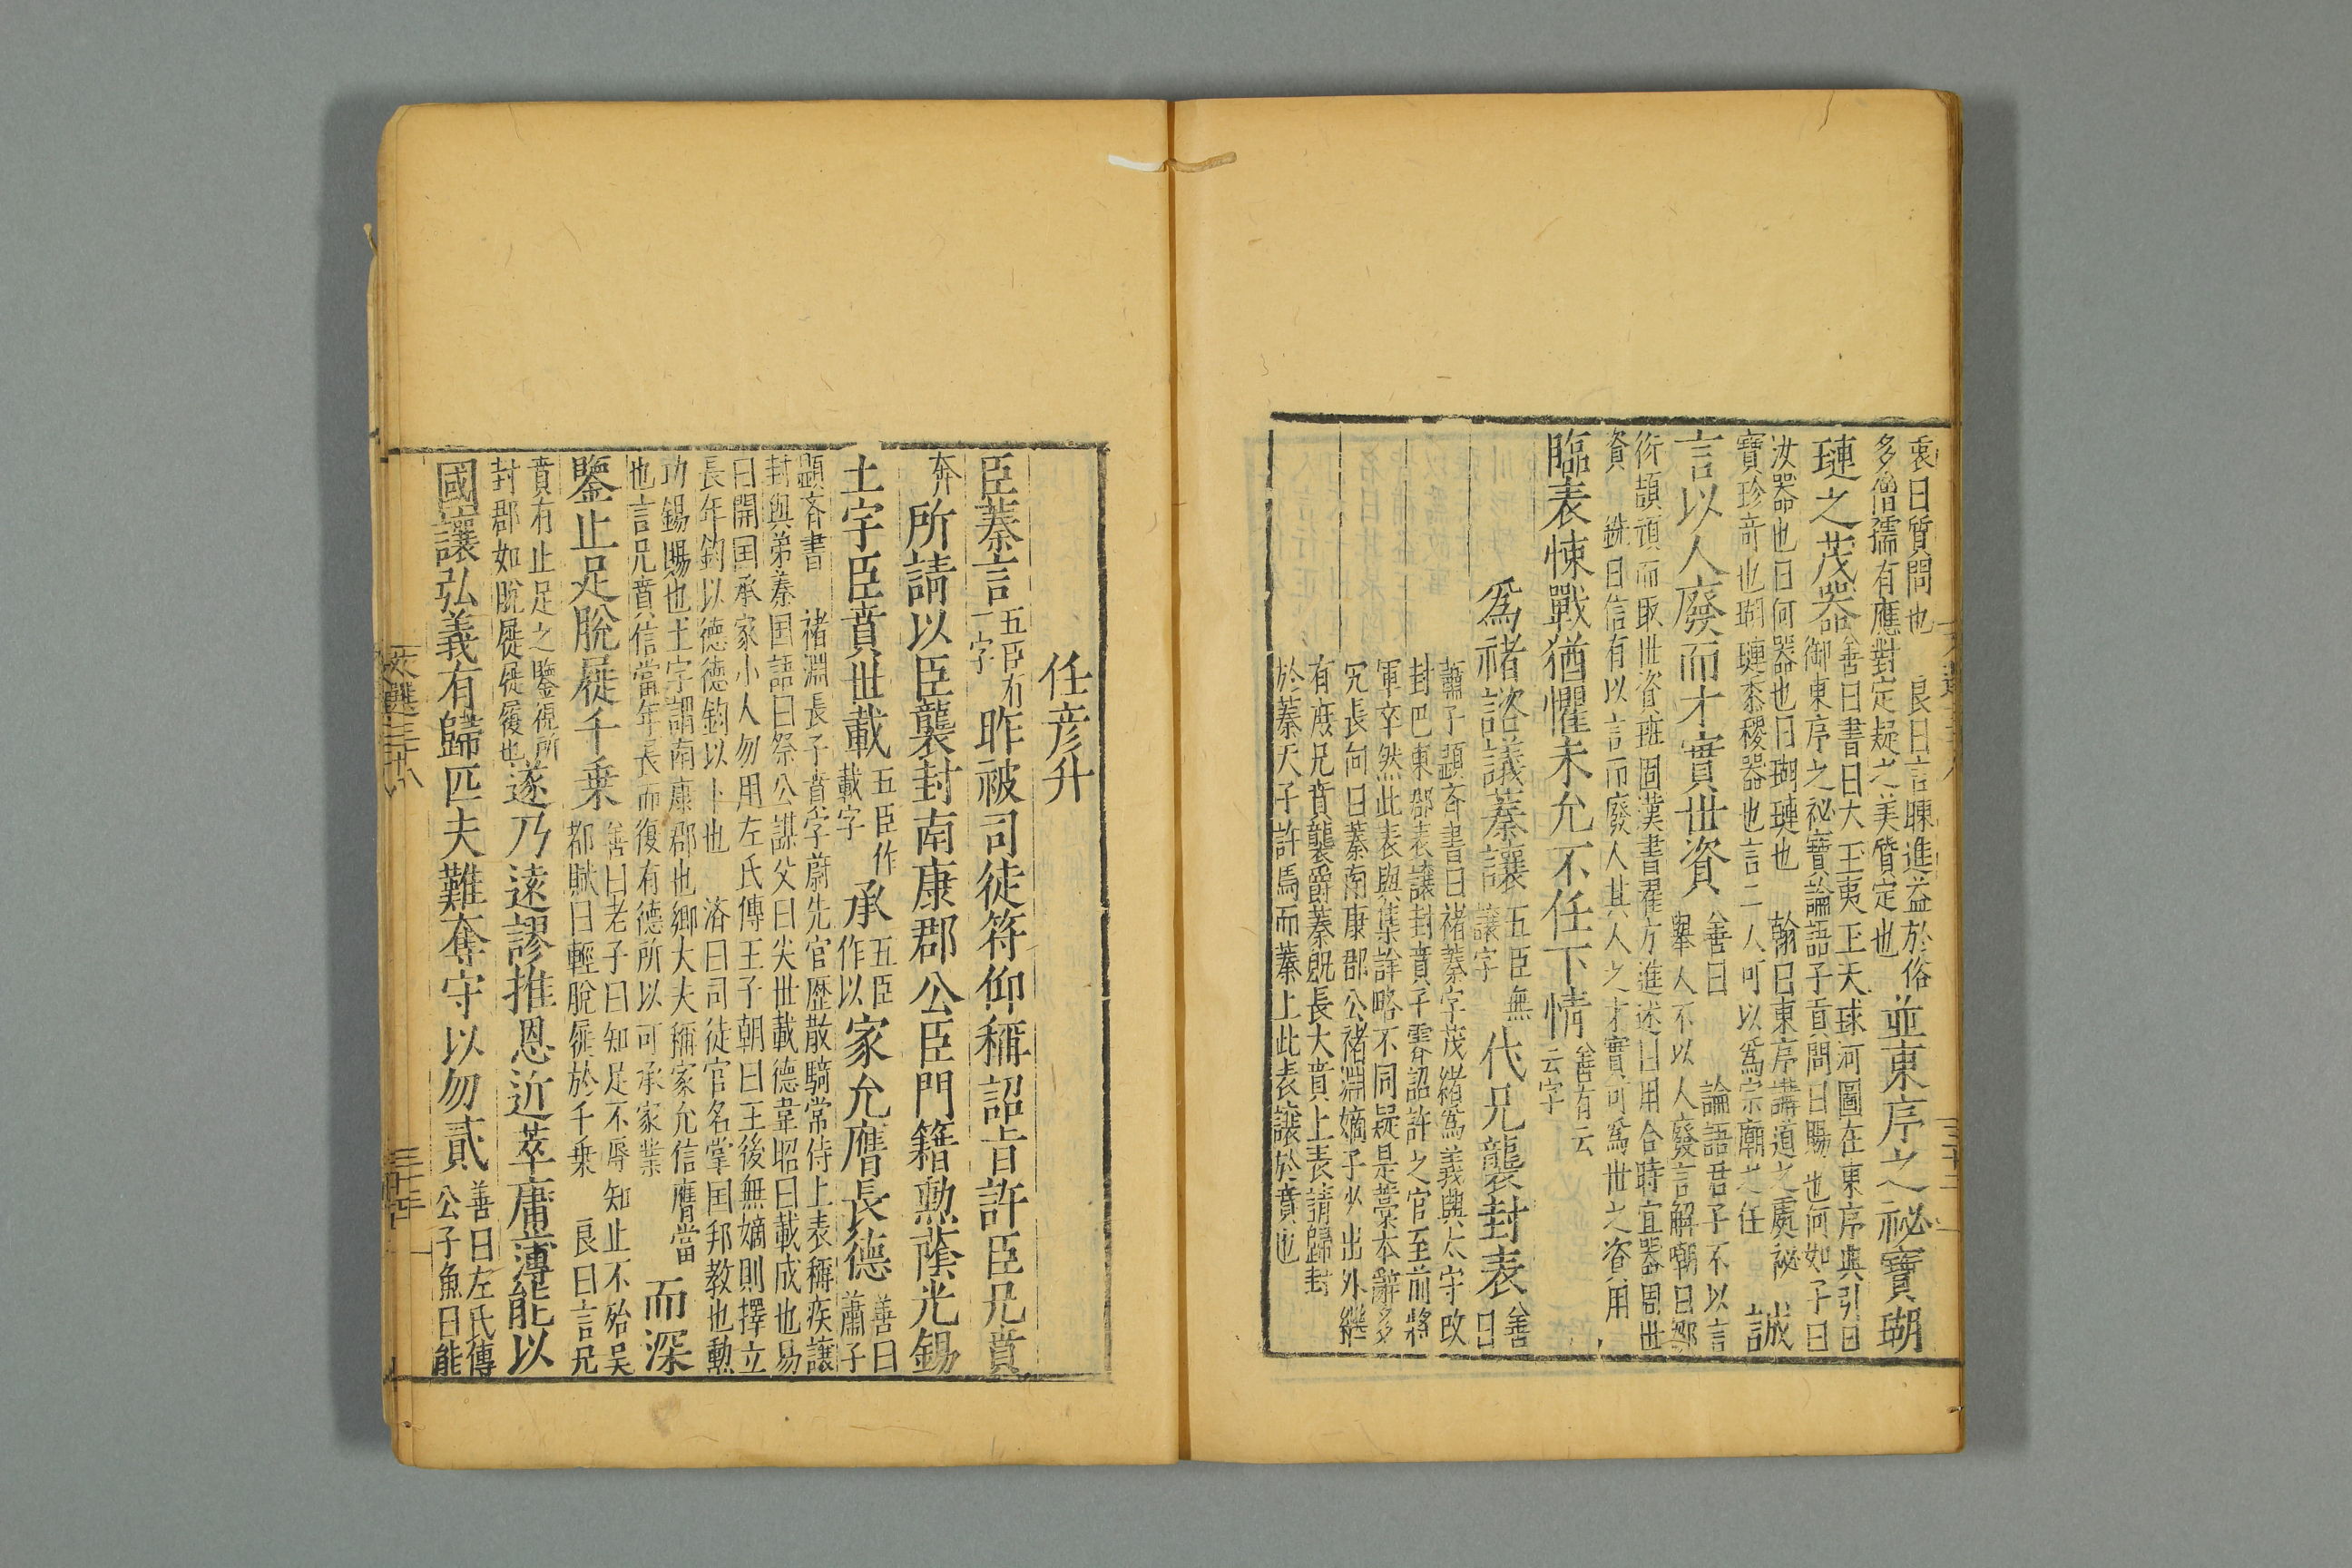 衷曰質問也　良曰言暕進益於俗
多僧孺有應對定疑之美質定也
並東序之祕寶瑚
璉之茂器
善曰書曰大玉夷玉天球河圖在東序典引曰
御東序之祕寶論語子貢問曰賜也何如子曰
汝器也曰何器也曰瑚璉也　翰曰東序講道之處祕
寶珍奇也瑚璉黍稷器也言二人可以爲宗廟之任
誠
言以人廢而才實世資
善曰　論語君子不以言
舉人不以人廢言解嘲曰鄒
衍頡頏而取世資班固漢書翟方進述曰用合時宜器周世
資　銑曰信有以言而廢人其人之才實可爲世之資用
臨表悚戰猶懼未允不任下情
善有云
云字
爲褚諮議蓁讓
五臣無
讓字
代兄襲封表
善
曰
蕭子顯齊書曰褚蓁字茂緒爲義興太守改
封巴東郡表讓封賁子霽詔許之官至前將
軍卒然此表與集詳略不同疑是藁本辭多
冗長向曰蓁南康郡公褚淵嫡子以出外繼
有庶兄賁襲爵蓁旣長大賁上表請歸封
於蓁天子許焉而蓁上此表讓於賁也
任彦升
臣蓁言
五臣有
一字
昨被司徒符仰稱詔旨許臣兄賁
奔
所請以臣襲封南康郡公臣門籍勳蔭光錫
土宇臣賁世載
五臣作
載字
承
五臣
作以
家允膺長德
善曰
蕭子
顯齊書　褚淵長子賁字蔚先官歷散騎常侍上表稱疾讓
封與弟蓁国語曰祭公謀父曰奕世載德韋昭曰載成也易
曰開国承家小人勿用左氏傳王子朝曰王後無嫡則擇立
長年鈞以德德鈞以卜也　濟曰司徒官名掌国邦教也勳
功錫賜也土宇謂南康郡也卿大夫稱家允信膺當
也言兄賁信當年長而復有德所以可承家業
而深
鑒止足脫屣千乗
善曰老子曰知足不辱知止不殆吴
都賦曰輕脫屣於千乗　良曰言兄
賁有止足之鑒視所
封郡如脫屣屣履也
遂乃遠謬推恩近萃庸薄能以
國讓弘義有歸匹夫難奪守以勿貳
善曰左氏傳
公子魚曰能
文選三十八
三十三